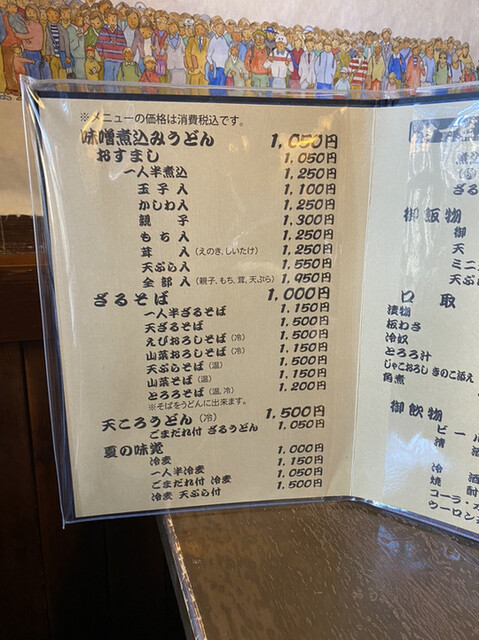 ※メニューの価格は消費税込です。
味噌煮込みうどん 1,050円
おすまし 1,050円
一人半煮込 1,250円
玉子入 1,100円
かしわ入 1,250円
親子 1,300円
もち入 1,250円
茸入(えのき,しいたけ) 1,250円
天ぷら入 1,550円
全部入(親子,もち,茸,天ぷら) 1,950円
ざるそば 1,000円
一人半ざるそば 1,150円
天ざるそば 1,500円
えびおろしそば(冷) 1,500円
山菜おろしそば(冷) 1,150円
天ぷらそば(温) 1,500円
山菜そば(温) 1,150円
とろろそば(温,冷) 1,200円
※そばをうどんに出来ます。
天ころうどん(冷) 1,500円
ごまだれ付 ざるうどん 1,050円
夏の味覚
冷麦 1,000円
一人半冷麦 1,150円
ごまだれ付 冷麦 1,050円
冷麦 天ぷら付 1,500円
煮込
ざる
御飯物
御
天
ミニ
天ぷ
口取
漬物
板わさ
冷奴
とろろ汁
じゃこおろし きのこ添え
角煮
御飲物
ビール
清酒
冷酒
焼酎
コーラ・オ
ウーロン